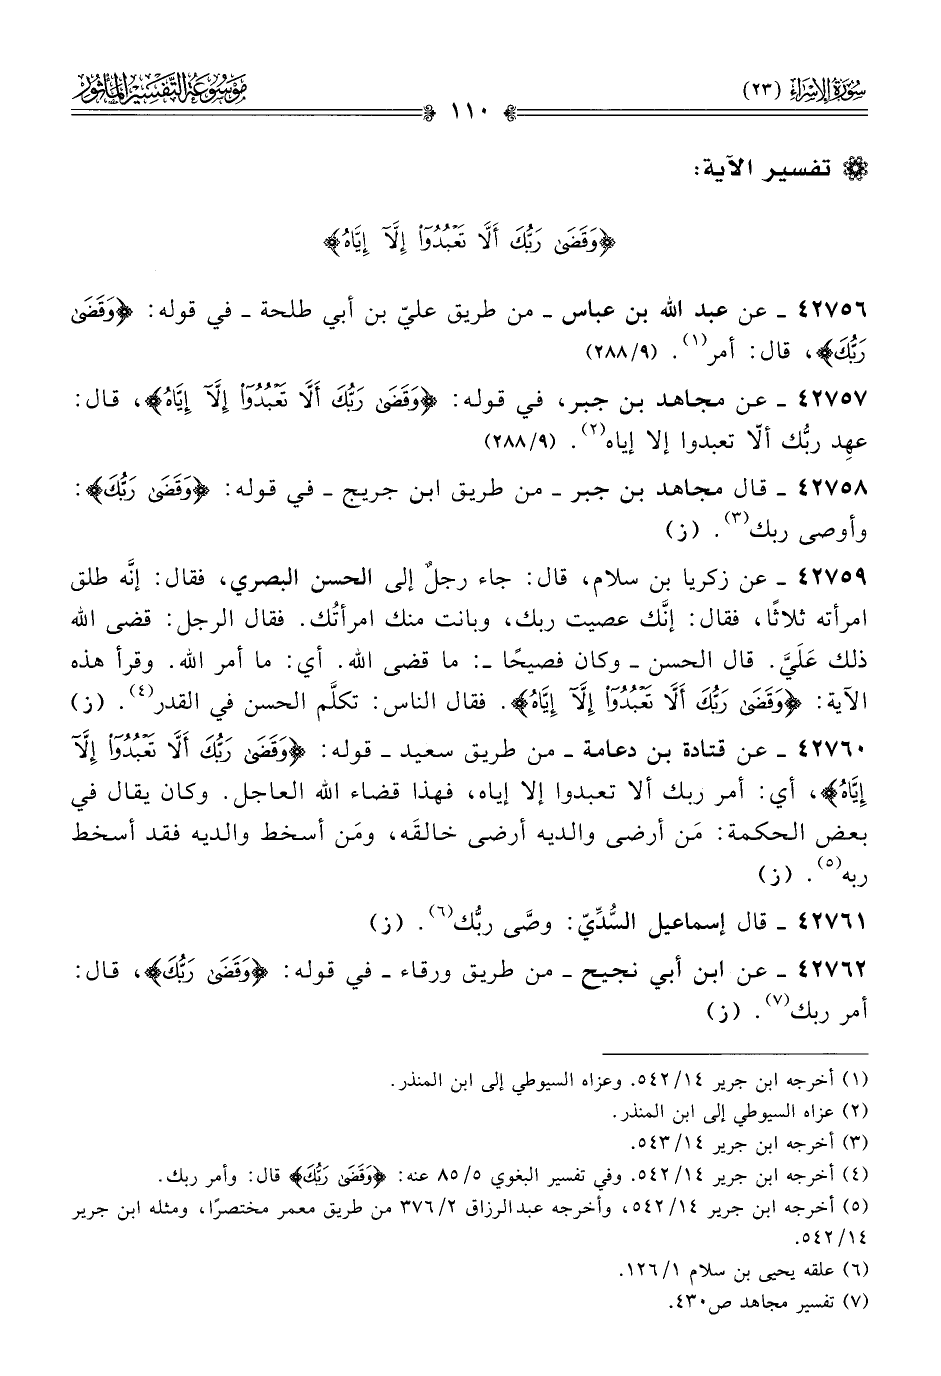 سُورَةُ الإِسْرَاءِ (٢٣)
١١٠
مَوْسُوعَةُ التَّفْسِيرِ المَأْثُورِ
تفسير الآية:
﴿وَقَضَىٰ رَبُّكَ أَلَّا تَعْبُدُوٓا۟ إِلَّآ إِيَّاهُ﴾
٤٢٧٥٦ ـ عن عبد الله بن عباس ـ من طريق عليّ بن أبي طلحة ـ في قوله: ﴿وَقَضَىٰ
رَبُّكَ﴾، قال: أمر(١). (٢٨٨/٩)
٤٢٧٥٧ ـ عن مجاهد بن جبر، في قوله: ﴿وَقَضَىٰ رَبُّكَ أَلَّا تَعْبُدُوٓا۟ إِلَّآ إِيَّاهُ﴾، قال:
عهِد ربُّك ألّا تعبدوا إلا إياه(٢). (٢٨٨/٩)
٤٢٧٥٨ ـ قال مجاهد بن جبر ـ من طريق ابن جريج ـ في قوله: ﴿وَقَضَىٰ رَبُّكَ﴾:
وأوصى ربك(٣). (ز)
٤٢٧٥٩ ـ عن زكريا بن سلام، قال: جاء رجلٌ إلى الحسن البصري، فقال: إنَّه طلق
امرأته ثلاثًا، فقال: إنَّك عصيت ربك، وبانت منك امرأتُك. فقال الرجل: قضى الله
ذلك عَلَيَّ. قال الحسن ـ وكان فصيحًا ـ: ما قضى الله. أي: ما أمر الله. وقرأ هذه
الآية: ﴿وَقَضَىٰ رَبُّكَ أَلَّا تَعْبُدُوٓا۟ إِلَّآ إِيَّاهُ﴾. فقال الناس: تكلَّم الحسن في القدر(٤). (ز)
٤٢٧٦٠ ـ عن قتادة بن دعامة ـ من طريق سعيد ـ قوله: ﴿وَقَضَىٰ رَبُّكَ أَلَّا تَعْبُدُوٓا۟ إِلَّآ
إِيَّاهُ﴾، أي: أمر ربك ألا تعبدوا إلا إياه، فهذا قضاء الله العاجل. وكان يقال في
بعض الحكمة: مَن أرضى والديه أرضى خالقَه، ومَن أسخط والديه فقد أسخط
ربه(٥). (ز)
٤٢٧٦١ ـ قال إسماعيل السُّدِّيّ: وصَّى ربُّك(٦). (ز)
٤٢٧٦٢ ـ عن ابن أبي نجيح ـ من طريق ورقاء ـ في قوله: ﴿وَقَضَىٰ رَبُّكَ﴾، قال:
أمر ربك(٧). (ز)
(١) أخرجه ابن جرير ١٤/ ٥٤٢. وعزاه السيوطي إلى ابن المنذر.
(٢) عزاه السيوطي إلى ابن المنذر.
(٣) أخرجه ابن جرير ١٤/ ٥٤٣.
(٤) أخرجه ابن جرير ١٤/ ٥٤٢. وفي تفسير البغوي ٥/ ٨٥ عنه: ﴿وَقَضَىٰ رَبُّكَ﴾ قال: وأمر ربك.
(٥) أخرجه ابن جرير ١٤/ ٥٤٢، وأخرجه عبدالرزاق ٢/ ٣٧٦ من طريق معمر مختصرًا، ومثله ابن جرير
١٤/ ٥٤٢.
(٦) علقه يحيى بن سلام ١/ ١٢٦.
(٧) تفسير مجاهد ص٤٣٠.